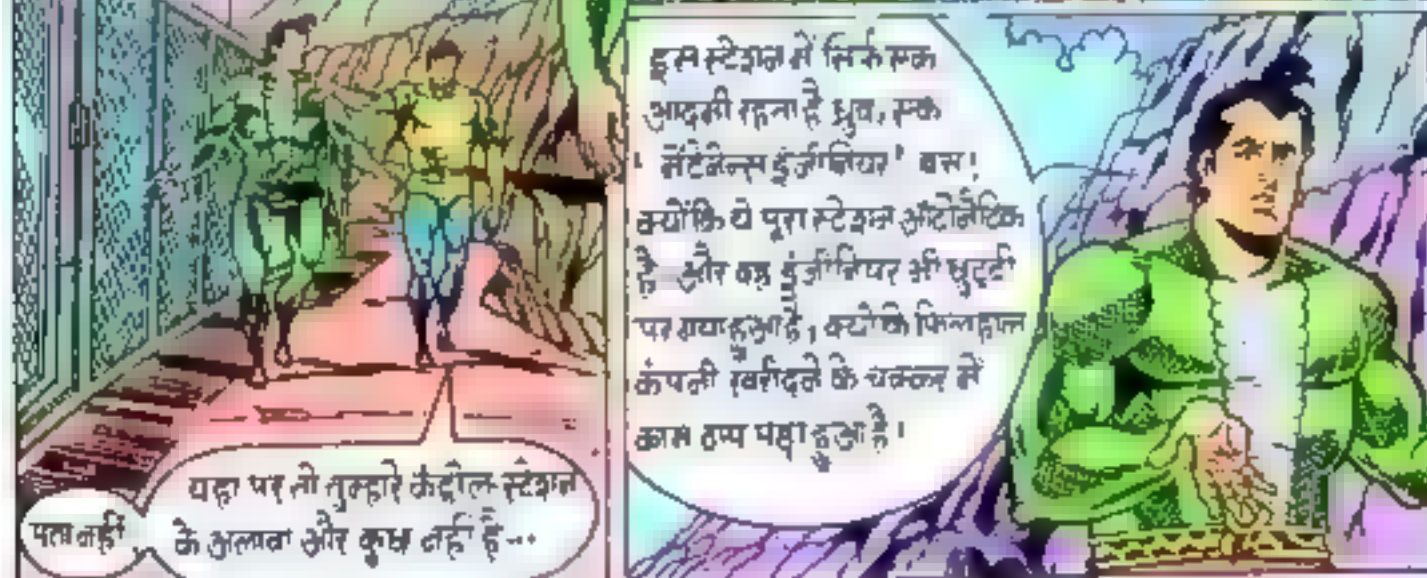 पता नहीं,
यहां पर तो तुम्हारे कंट्रोल-स्टेशन
के अलावा और कुछ नहीं है---
इस स्टेशन में सिर्फ एक
आदमी रहता है ध्रुव, एक
'मेंटेनेन्स इंजीनियर' बस!
क्योंकि ये पूरा स्टेशन ऑटोमैटिक
है- और वह इंजीनियर भी छुट्टी
पर गया हुआ है, क्योंकि फिलहाल
कंपनी खरीदने के चक्कर में
काम ठप्प पड़ा हुआ है।